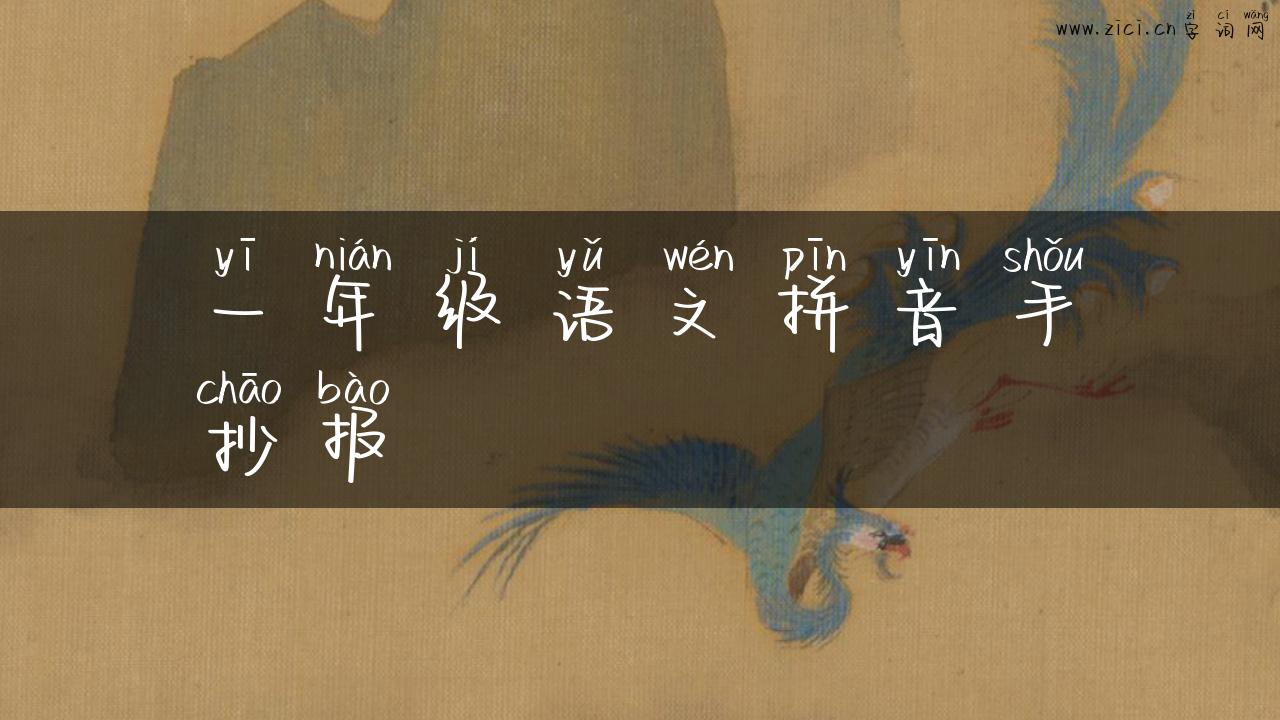 zì cí wǎng
www.zici.cn 字 词 网
yī nián jí yǔ wén pīn yīn shǒu
一 年 级 语 文 拼 音 手
chāo bào
抄 报